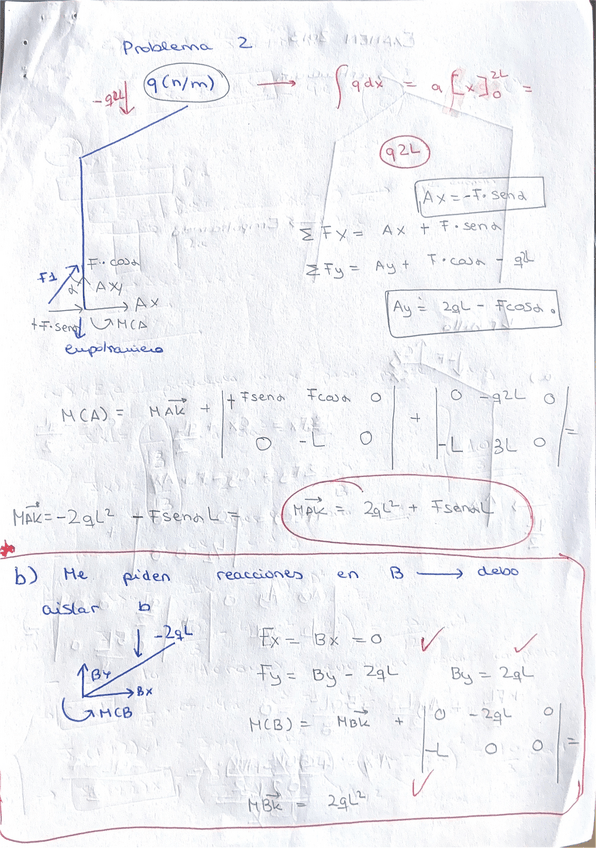 Problema 2
-q2L q(n/m) → ∫ q dx = a [x]₀²ᴸ =
q2L
Ax = -F·senα
Σ Fx = Ax + F·senα
Σ Fy = Ay + F·cosα - q2L
Ay = 2qL - Fcosα.
F·cosα
F1 α Ay
Ax
+F·senα MCA
M(A) = MAk + | +Fsenα Fcosα 0 | + | 0 -q2L 0 | =
| 0 -L 0 | | -L 3L 0 |
MAk = -2qL² - FsenαL = MAk = 2qL² + FsenαL
b) Me piden reacciones en B → debo
aislar b
-2qL
By
Bx
MCB
Fx = Bx = 0 ✓
Fy = By - 2qL By = 2qL ✓
M(B) = MBk + | 0 -2qL 0 | =
| -L 0 0 |
MBk = 2qL² ✓